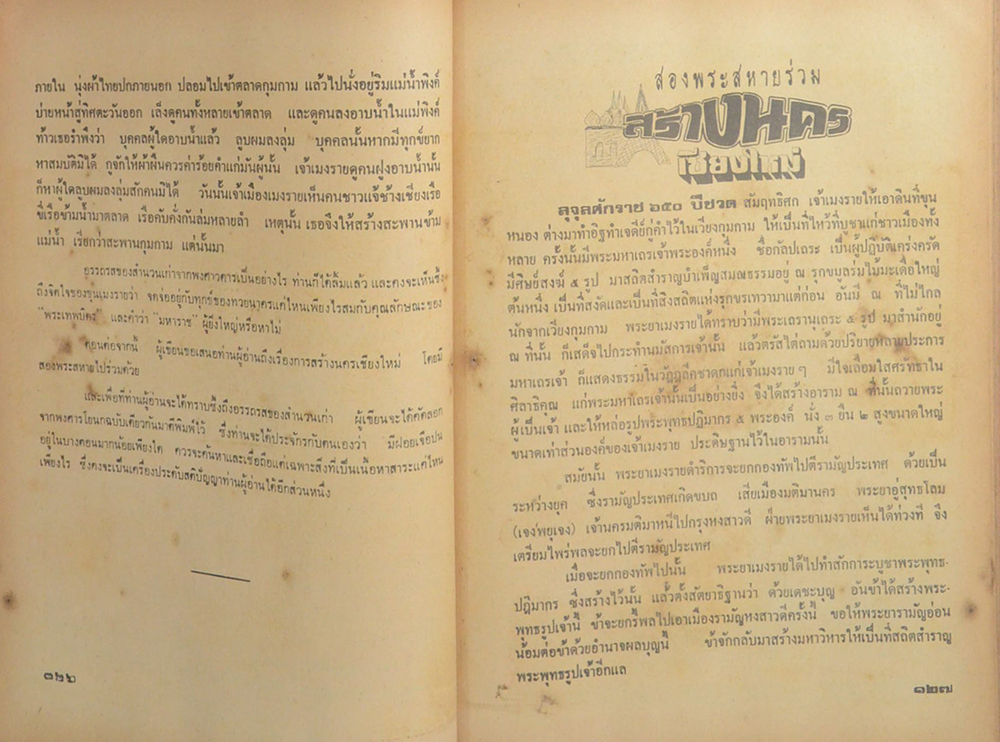 ภายใน นุ่งผ้าไทยปกภายนอก ปลอมไปเข้าตลาดกุมกาม แล้วไปนั่งอยู่ริมแม่น้ำพิงค์
บ่ายหน้าสู่ทิศตะวันออก เล็งดูคนทั้งหลายเข้าตลาด และดูคนลงอาบน้ำในแม่พิงค์
ท้าวเธอรำพึงว่า บุคคลผู้ใดอาบน้ำแล้ว ลูบผมลงลุ่ม บุคคลนั้นหากมีทุกข์ยาก
หาสมบัติมิได้ กูจักให้ผ้าผืนควรค่าร้อยคำแก่มันผู้นั้น เจ้าเมงรายดูคนฝูงอาบน้ำนั้น
ก็หาผู้ใดลูบผมลงลุ่มสักคนมิได้ วันนั้นเจ้าเมืองเมงรายเห็นคนชาวแจ้ช้างเชียงเรือ
ขี่เรือข้ามน้ำมาตลาด เรือคับคั่งกันล่มหลายลำ เหตุนั้น เธอจึงให้สร้างสะพานข้าม
แม่น้ำ เรียกว่าสะพานกุมกาม แต่นั้นมา
อรรถรสของสำนวนเก่าจากพงศาวดารเป็นอย่างไร ท่านก็ได้ลิ้มแล้ว และคงจะเห็นซึ้ง
ถึงจิตใจของขุนเมงรายว่า จดจ่ออยู่กับทุกข์ของทวยนาครแค่ไหนเพียงไรสมกับคุณลักษณะของ
"พระเทพบิดร" และคำว่า "มหาราช" ผู้ยิ่งใหญ่หรือหาไม่
ตอนต่อจากนี้ ผู้เขียนขอเสนอท่านผู้อ่านถึงเรื่องการสร้างนครเชียงใหม่ โดยมี
สองพระสหายไปร่วมด้วย
และเพื่อที่ท่านผู้อ่านจะได้ทราบซึ้งถึงอรรถรสของสำนวนเก่า ผู้เขียนจะได้คัดลอก
จากพงศารโยนกฉบับเดียวกันมาตีพิมพ์ไว้ ซึ่งท่านจะได้ประจักร์กับตนเองว่า มีฝอยเจือปน
อยู่ในบางตอนมากน้อยเพียงใด ควรจะค้นหาและเชื่อถือแค่เฉพาะสิ่งที่เป็นเนื้อหาสาระแค่ไหน
เพียงไร ซึ่งคงจะเป็นเครื่องประดับสติปัญญาท่านผู้อ่านได้อีกส่วนหนึ่ง
๑๒๖
สองพระสหายร่วม
สร้างนคร
เชียงใหม่
ลุจุลศักราช ๖๕๐ ปีชวด สัมฤทธิศก เจ้าเมงรายให้เอาดินที่ขุน
หนอง ต่างมาทำอิฐทำเจดีย์กู่คำไว้ในเวียงกุมกาม ให้เป็นที่ไหว้ที่บูชาแก่ชาวเมืองทั้ง
หลาย ครั้งนั้นมีพระมหาเถรเจ้าพระองค์หนึ่ง ชื่อกัลปเถระ เป็นผู้ปฏิบัติเคร่งครัด
มีศิษย์สงฆ์ ๕ รูป มาสถิตสำราญบำเพ็ญสมณธรรมอยู่ ณ รุกขมูลร่มไม้มะเดื่อใหญ่
ต้นหนึ่ง เป็นที่สงัดและเป็นที่สิงสถิตแห่งรุกขรเทวามาแต่ก่อน อันมี ณ ที่ไม่ไกล
นักจากเวียงกุมกาม พระยาเมงรายได้ทราบว่ามีพระเถรานุเถระ ๕ รูป มาสำนักอยู่
ณ ที่นั้น ก็เสด็จไปกระทำนมัสการเจ้านั้น แล้วตรัสไต่ถามด้วยปริยายหลายประการ
มหาเถรเจ้า ก็แสดงธรรมในวัฏฏลีคชาดกแก่เจ้าเมงราย ๆ มีใจเลื่อมใสศรัทธาใน
ศิลาธิคุณ แก่พระมหาเถรเจ้านั้นเป็นอย่างยิ่ง จึงได้สร้างอาราม ณ ที่นั้นถวายพระ
ผู้เป็นเจ้า และให้หล่อรูปพระพุทธปฏิมากร ๕ พระองค์ นั่ง ๓ ยืน ๒ สูงขนาดใหญ่
ขนาดเท่าส่วนองค์ของเจ้าเมงราย ประดิษฐานไว้ในอารามนั้น
สมัยนั้น พระยาเมงรายดำริการจะยกกองทัพไปตีรามัญประเทศ ด้วยเป็น
ระหว่างยุค ซึ่งรามัญประเทศเกิดขบถ เสียเมืองมติมานคร พระยาอู่สุทธโสม
(เจงพ่ยุเจง) เจ้านครมติมาหนีไปกรุงหงสาวดี ฝ่ายพระยาเมงรายเห็นได้ท่วงที จึง
เตรียมไพร่พลจะยกไปตีรามัญประเทศ
เมื่อจะยกกองทัพไปนั้น พระยาเมงรายได้ไปทำสักการะบูชาพระพุทธ-
ปฏิมากร ซึ่งสร้างไว้นั้น แล้วตั้งสัตยาธิฐานว่า ด้วยเดชะบุญ อันข้าได้สร้างพระ-
พุทธรูปเจ้านี้ ข้าจะยกรี้พลไปเอาเมืองรามัญหงสาวดีครั้งนี้ ขอให้พระยารามัญอ่อน
น้อมต่อข้าด้วยอำนาจผลบุญนี้ ข้าจักกลับมาสร้างมหาวิหารให้เป็นที่สถิตสำราญ
พระพุทธรูปเจ้าอีกแล
๑๒๗